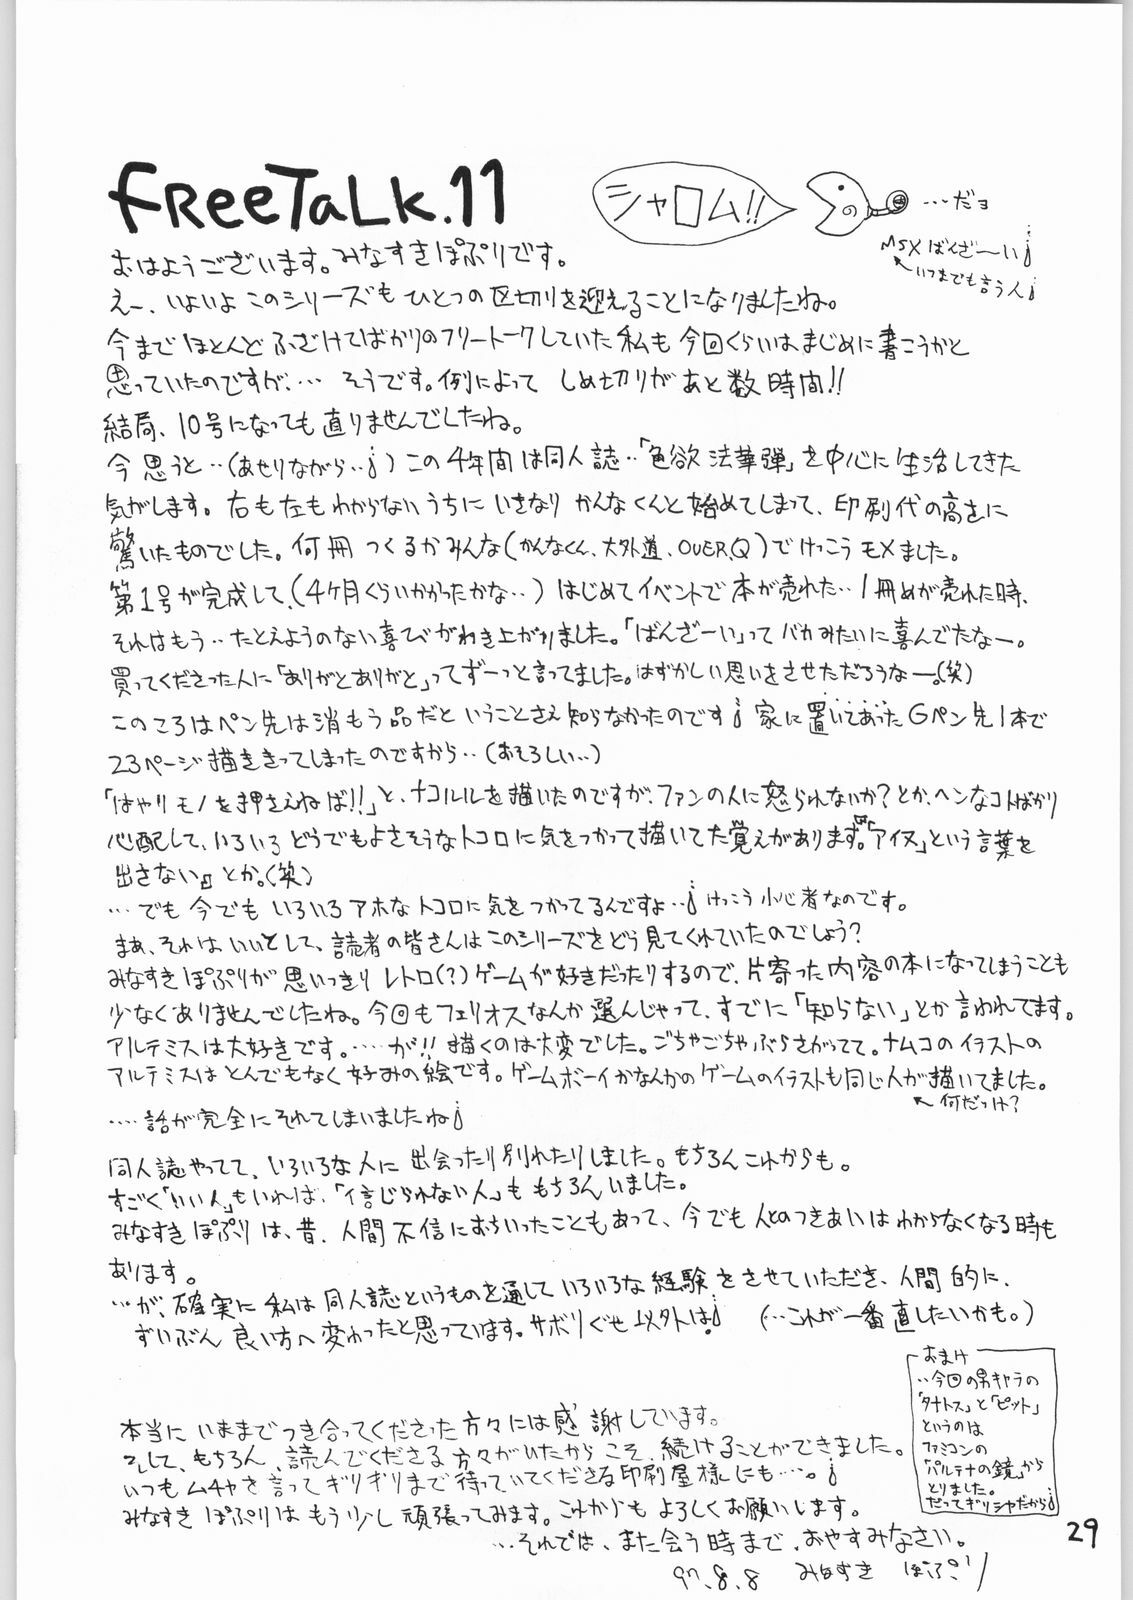 FReeTaLk.11
シャロム!!
…だョ
MSXばんざ〜い
いつまでも言う人
おはようございます。みなすきぽぷりです。
えー、いよいよこのシリーズもひとつの区切りを迎えることになりましたね。
今までほとんどふざけてばかりのフリートークしていた私も今回くらいはまじめに書こうかと
思っていたのですが、… そうです。例によって しめ切りがあと数時間!!
結局、10号になっても直りませんでしたね。
今思うと‥(あせりながら‥)この4年間は同人誌‥「色欲法華弾」を中心に生活してきた
気がします。右も左もわからないうちにいきなりかんなくんと始めてしまって、印刷代の高さに
驚いたものでした。何冊つくるかみんな(かんなくん、大外道、OVER.Q)でけっこうモメました。
第1号が完成して、(4ケ月くらいかかったかな‥)はじめてイベントで本が売れた‥1冊めが売れた時、
それはもう‥たとえようのない喜びがわき上がりました。「ばんざーい」ってバカみたいに喜んでたなー。
買ってくださった人に「ありがとありがと」ってずーっと言ってました。はずかしい思いをさせただろうなー。(笑)
このころはペン先は消もう品だということさえ知らなかったのです 家に置いてあったGペン先1本で
23ページ描ききってしまったのですから‥(おそろしい‥)
「はやりモノを押さえねば!!」と、ナコルルを描いたのですが、ファンの人に怒られないか?とか、ヘンなコトばかり
心配して、いろいろどうでもよさそうなトコロに気をつかって描いてた覚えがあります。『「アイヌ」という言葉を
出さない』とか。(笑)
…でも今でもいろいろアホなトコロに気をつかってるんですよ‥けっこう小心者なのです。
まぁ、それはいいとして、読者の皆さんはこのシリーズをどう見てくれていたのでしょう?
みなすきぽぷりが思いっきりレトロ(?)ゲームが好きだったりするので、片寄った内容の本になってしまうことも
少なくありませんでしたね。今回もフェリオスなんか選んじゃって、すでに「知らない」とか言われてます。
アルテミスは大好きです。……が!!描くのは大変でした。ごちゃごちゃぶらさがってて。ナムコのイラストの
アルテミスはとんでもなく好みの絵です。ゲームボーイかなんかのゲームのイラストも同じ人が描いてました。
何だっけ?
‥‥話が完全にそれてしまいましたね
同人誌やってて、いろいろな人に出会ったり別れたりしました。もちろんこれからも。
すごく「いい人」もいれば、「信じられない人」ももちろんいました。
みなすきぽぷりは、昔、人間不信におちいったこともあって、今でも人とのつきあいはわからなくなる時も
あります。
…が、確実に私は同人誌というものを通していろいろな経験をさせていただき、人間的に、
ずいぶん良い方へ変わったと思っています。サボりぐせ以外は! (…これが一番直したいかも。)
本当にいままでつき合ってくださった方々には感謝しています。
そして、もちろん、読んでくださる方々がいたからこそ、続けることができました。
いつもムチャを言ってギリギリまで待っていてくださる印刷屋様にも…。
みなすきぽぷりはもう少し頑張ってみます。これからもよろしくお願いします。
…それでは、また会う時まで、おやすみなさい。
97.8.8 みなすき ぽぷり
おまけ
‥今回の男キャラの
「タナトス」と「ピット」
というのは
ファミコンの
「パルテナの鏡」から
とりました。
だってギリシャだから
29